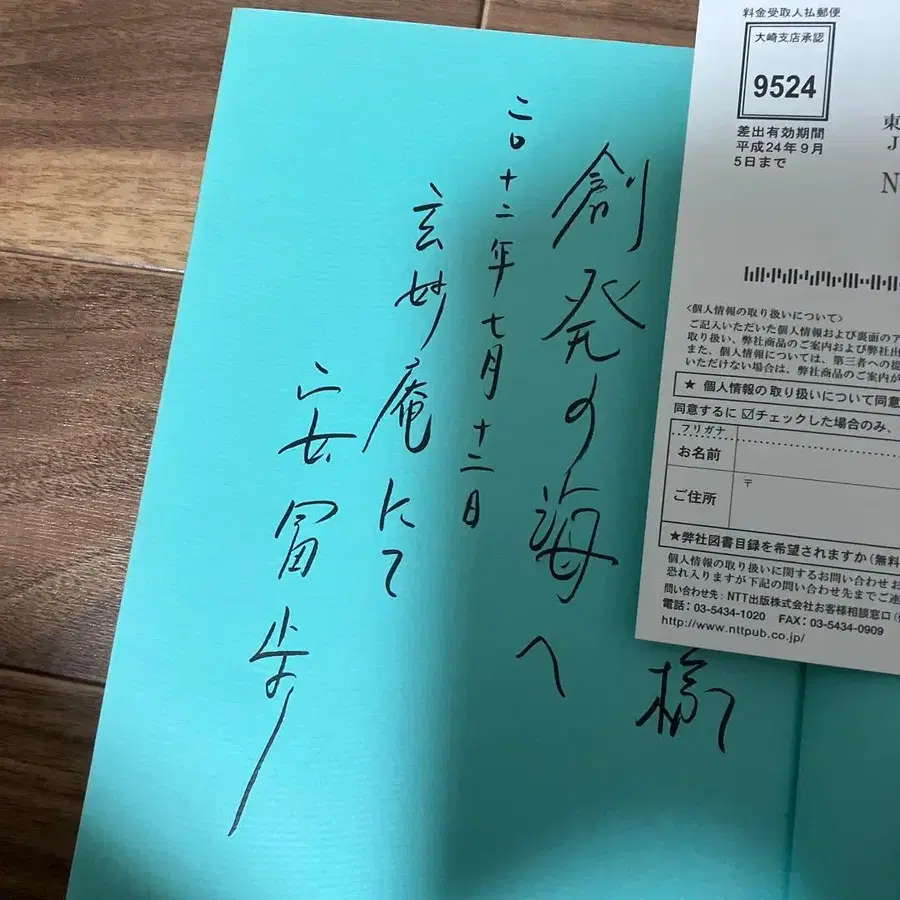 様
創発の海へ
二〇十二年七月十二日
玄妙庵にて
安冨歩
料金受取人払郵便
大崎支店承認
9524
差出有効期間
平成24年9月
5日まで
東
J
N
<個人情報の取り扱いについて>
ご記入いただいた個人情報および裏面のア
取り扱い、弊社商品のご案内および弊社出
また、個人情報については、第三者への提
いただけない場合は、弊社商品のご案内が
★ 個人情報の取り扱いについて同意
同意するに☑チェックした場合のみ、
フリガナ
お名前
ご住所
〒
★弊社図書目録を希望されますか(無料
個人情報の取り扱いに関するお問い合わせお
恐れ入りますが下記の問い合わせ先までご連
問い合わせ先:NTT出版株式会社お客様相談窓口
電話:03-5434-1020 FAX:03-5434-0909
http://www.nttpub.co.jp/